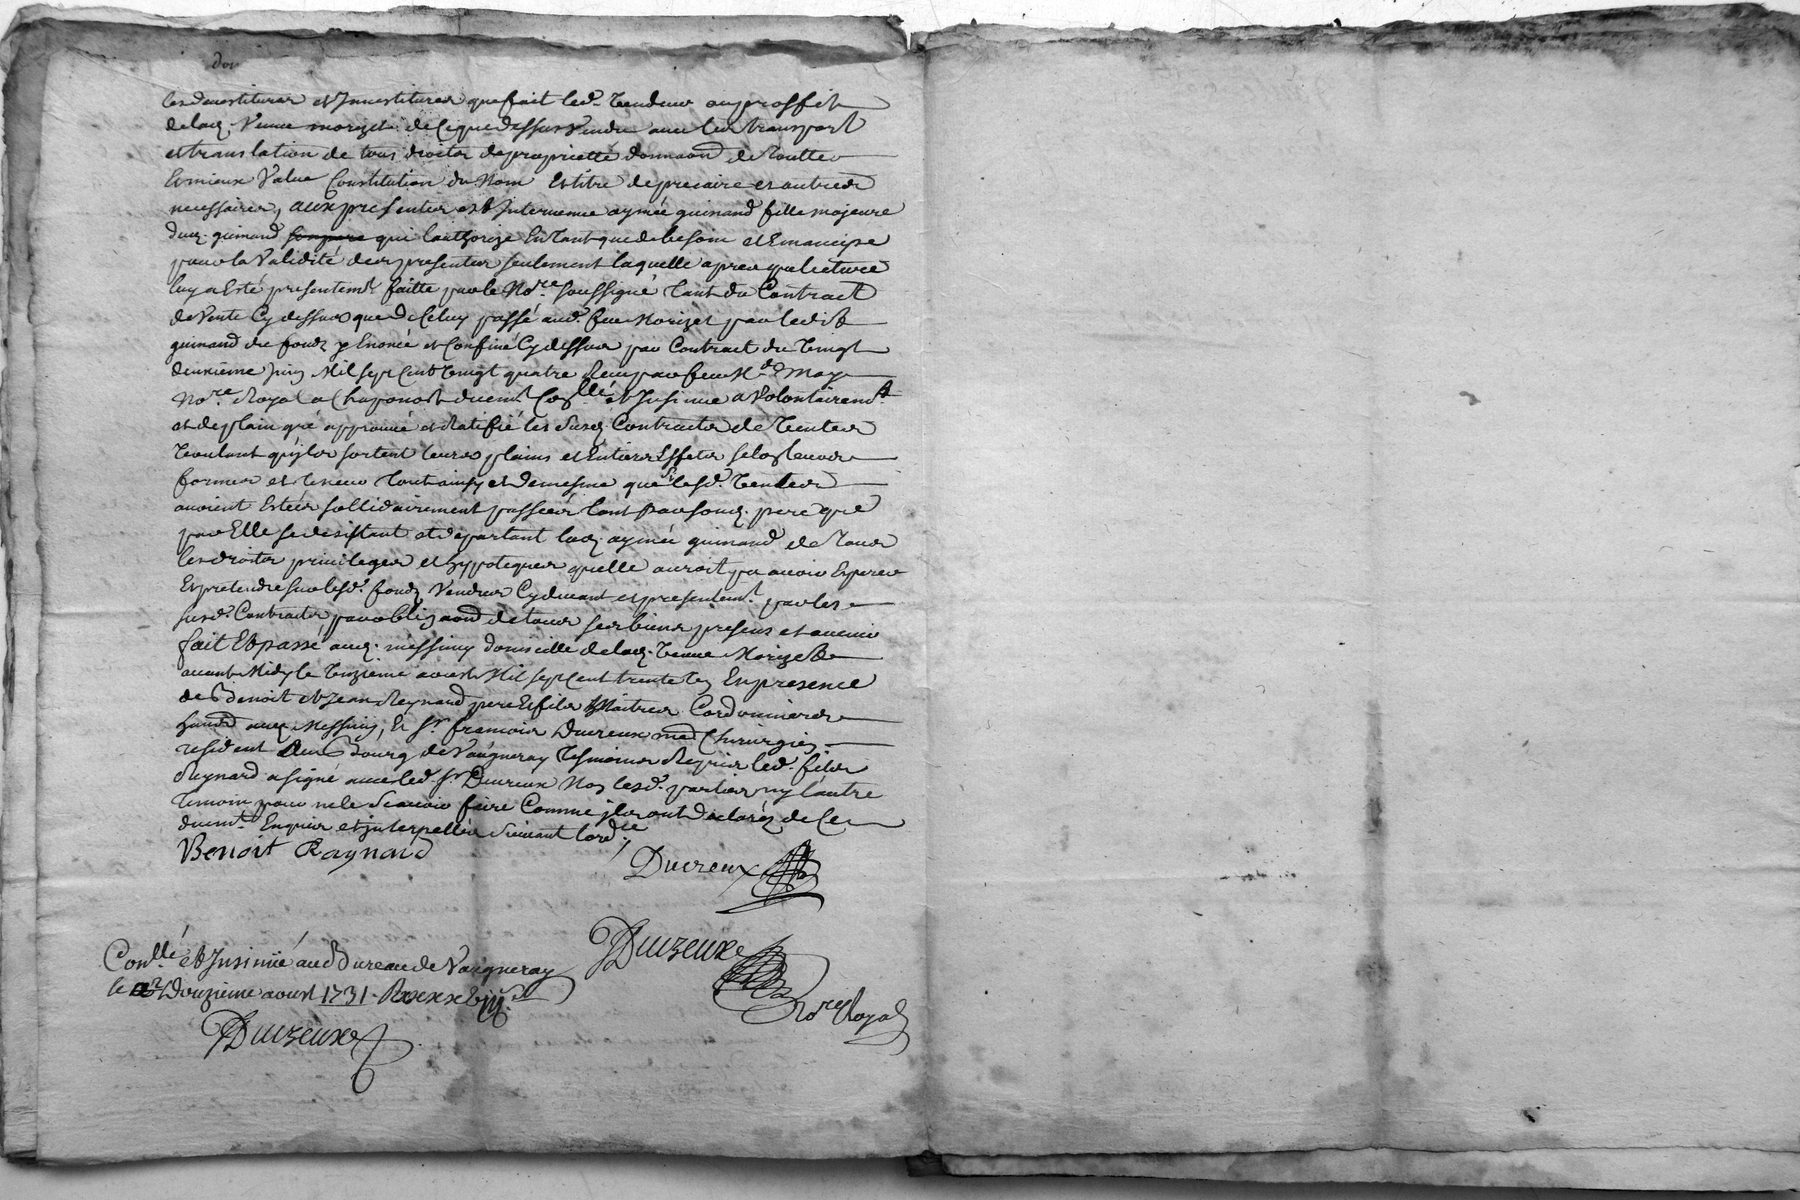 dou
les devestitures et Investitures que fait led. Vendeur au proffit
de lad. veuve morizet de ce que dessus vendu avec les transport
et translation de tous droits de proprietté domaond de toutte
et mieux value Constitution du Nom et titre de precaire et autres
necessaires, aux presentes est Intervenue aymée guinand fille majeure
dud. guinand son pere qui l'authorize En tant que de besoin et Emancipe
pour la validité des presentes seulement laquelle apres que lecture
luy a Esté presentemt. faitte par le No.re soussigné tant du Contract
de vente Cy dessus que de Celuy passé aud. feu Morizet par ledit
guinand du fondz Enoncé et Confiné Cy dessus par Contract du vingt
deuxieme Juin Mil sept Cent vingt quatre Receu par feu Me
No.re Royal a Chaponost duemt. Con.llé et Insinué a volontairemt.
et de plain gré approuvé et Ratifié les susd. Contracts de ventes
voulant qu'ils sortent leurs plains et Entiers Effets selon leurs
formes et teneur tout ainsy et de mesme que si lesd. ventes
avoient Estées sollidairement passées tant par sond. pere que
par Elle se desistant et departant lad. aymée guinand de tous
les droits privileges et hypoteques quelle auroit pu avoir Esperer
Et pretendre sur lesd. fondz vendues Cy devant et presentemt. par les
susd. Contracts par obligaond de tous ses biens presens et avenir
fait Et passé aud. messimy domicille de lad. veuve Morizet
avant Midy le aoust Mil sept Cent trente Un En presence
de Benoit et Jean Reynard pere Et fils Maitres Cordonniers
hands. aud. Messimy, Et Sr. francois Ducreux md Chirurgien
resident au Bourg de Vaugneray Tesmoins Requis led. fils
Reynard a signé avec led. Sr. Ducreux Non lesd. parties ny l'autre
temoin pour ne le scavoir faire Comme ils ont declarés de Ce
duemt. Enquis et interpellés suivant lord.ce
Benoit Raynard
Ducreux
Ducreux
No.re Royal
Con.llé et Insinué au Bureau de Vaugneray
le Douzieme aoust 1731.
Ducreux